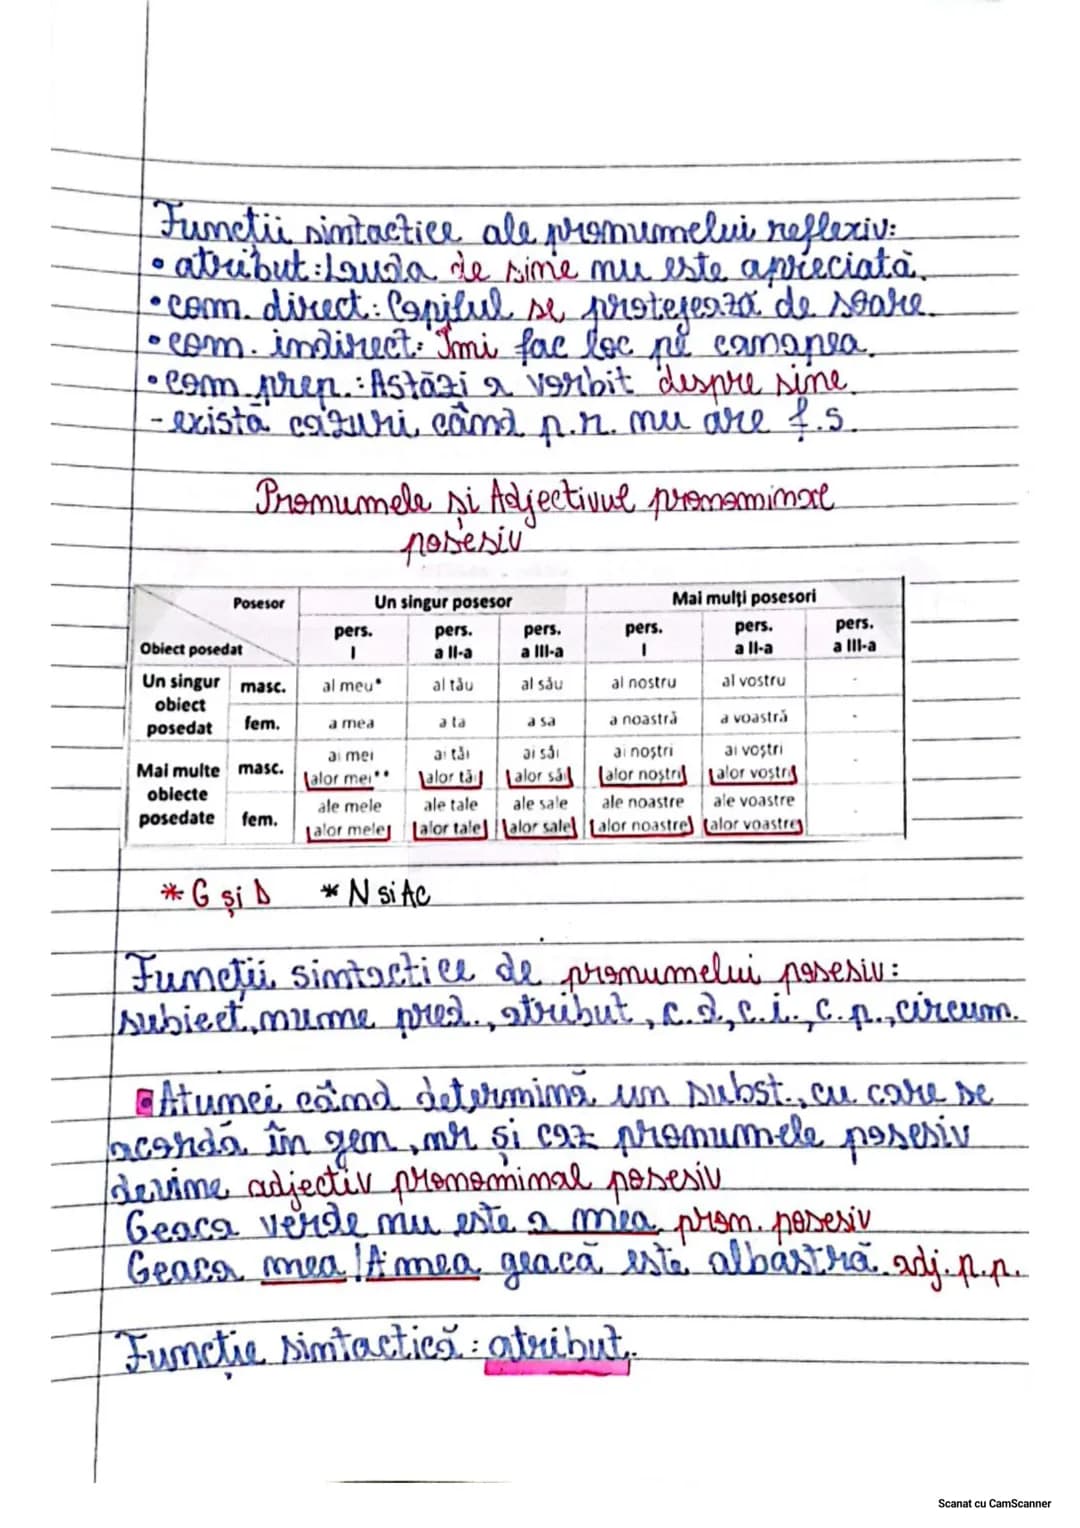 Funcții sintactice ale pronumelui reflexiv:
• atribut: Lauda de sine nu este apreciată.
• com. direct: Copilul se protejează de soare.
• com. indirect: Îmi fac loc pe canapea.
• com. prep.: Astăzi a vorbit despre sine.
- există cazuri când p.r. nu are f.s.
Pronumele și Adjectivul pronominal
posesiv
Posesor Un singur posesor Mai mulți posesori
Obiect posedat pers. I pers. a II-a pers. a III-a pers. I pers. a II-a pers. a III-a
Un singur obiect posedat masc. al meu* al tău al său al nostru al vostru -
fem. a mea a ta a sa a noastră a voastră -
Mai multe obiecte posedate masc. ai mei ai tăi ai săi ai noștri ai voștri -
alor mei** alor tăi alor săi alor noștri alor voștri
fem. ale mele ale tale ale sale ale noastre ale voastre -
alor mele alor tale alor sale alor noastre alor voastre
* G și D * N si Ac
Funcții sintactice de pronumelui posesiv:
subiect, nume pred., atribut, c.d, c.i., c.p., circum.
Atunci când determină un subst., cu care se
acordă în gen, nr și caz pronumele posesiv
devine adjectiv pronominal posesiv
Geaca verde nu este a mea. pron. posesiv
Geaca mea / A mea geacă este albastră. adj. p.p.
Funcție sintactică: atribut.
Scanat cu CamScanner